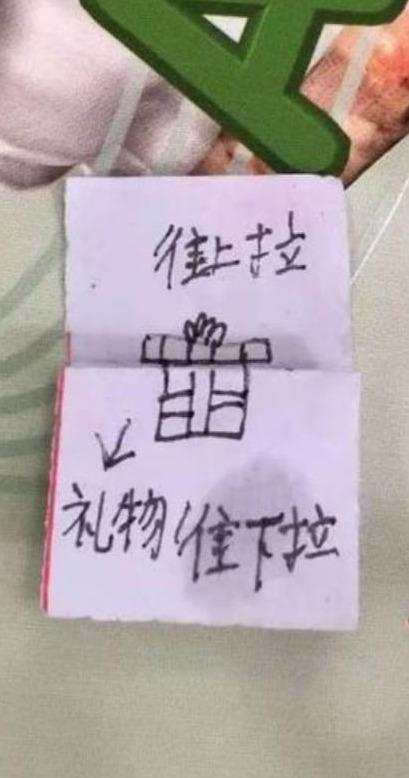 往上拉
礼物 往下拉